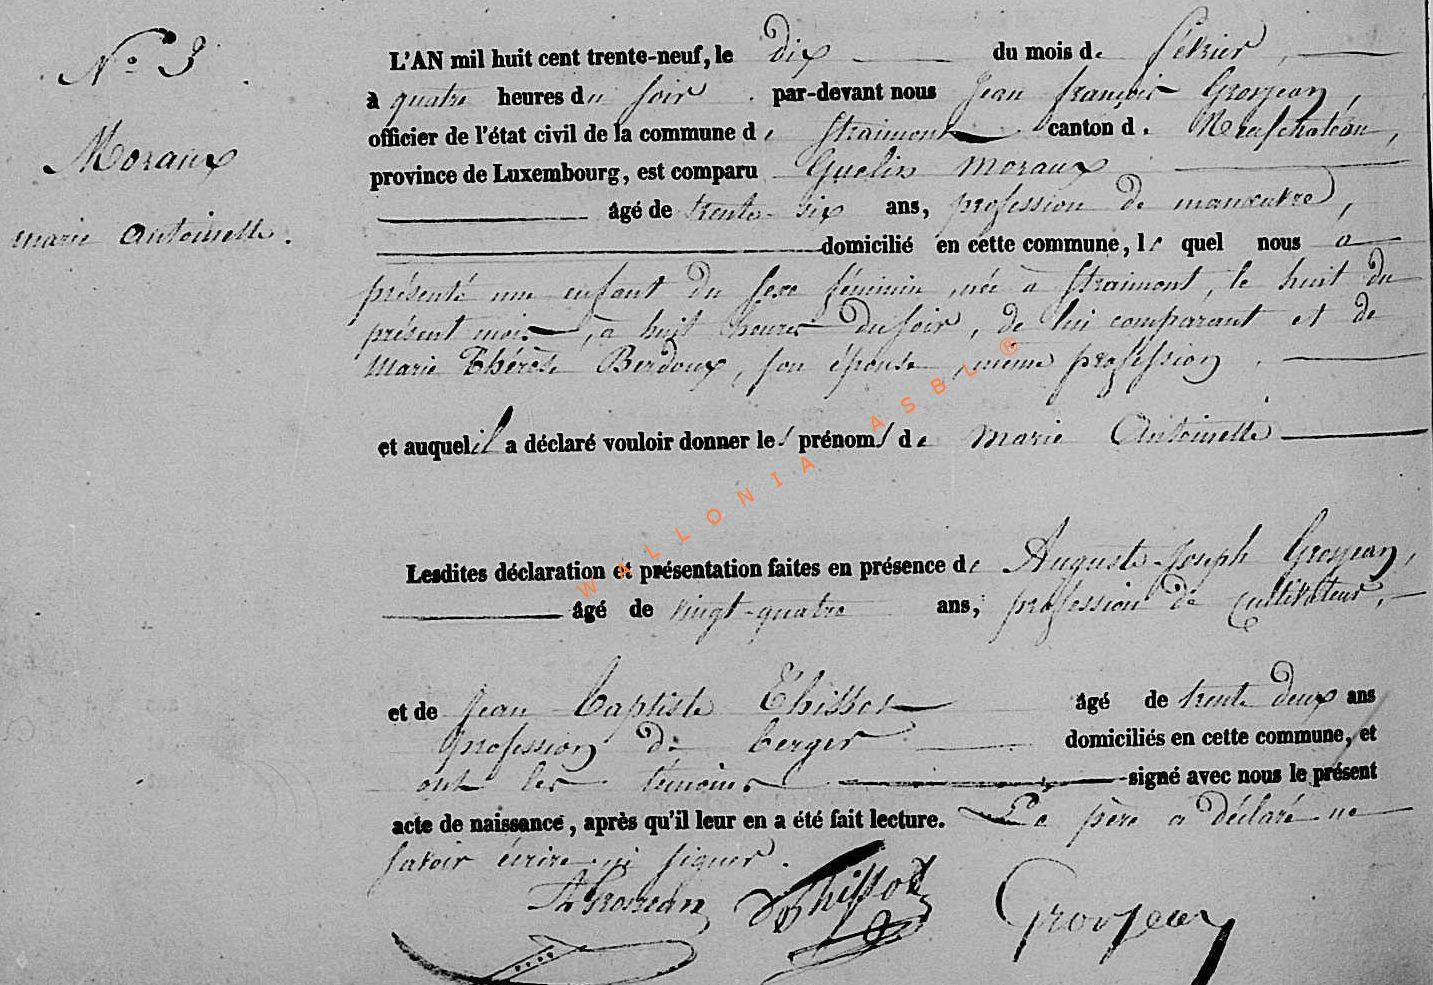 N.° 3
Moraux
marie Antoinette.
L'AN mil huit cent trente-neuf, le dix du mois de février,
à quatre heures du soir. par-devant nous Jean françois Grosjean,
officier de l'état civil de la commune de Straimont canton d. Neufchateau,
province de Luxembourg, est comparu Guelin Moraux
âgé de trente-six ans, profession de manœuvre,
domicilié en cette commune, lequel nous a
présenté une enfant du sexe féminin, née à Straimont, le huit du
présent mois, à huit heures du soir, de lui comparant et de
Marie Thérèse Berdoux, son épouse, même profession.
et auquel il a déclaré vouloir donner les prénoms de Marie Antoinette
Lesdites déclaration et présentation faites en présence de Auguste-Joseph Grosjean,
âgé de vingt-quatre ans, profession de cultivateur,
et de Jean Baptiste Thissot âgé de trente deux ans
profession de berger domiciliés en cette commune, et
ont les témoins signé avec nous le présent
acte de naissance, après qu'il leur en a été fait lecture. Le père a déclaré ne
savoir écrire ni signer.
A Grosjean Thissot Grosjean
WALLONIA ASBL ®